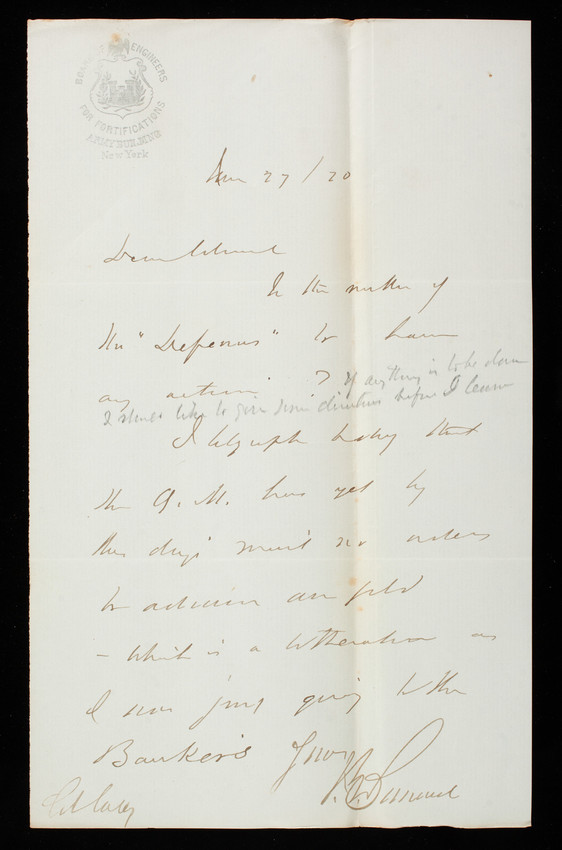 BOARD OF ENGINEERS
FOR FORTIFICATIONS
ARMY BUILDING
New York
27/80
Dear Colonel
In the matter of
the "Defenses" to have
any action ? If anything is to be done
I should like to give some directions before I leave
I telegraph today that
the Q.M. has yet by
this day's mail no orders
to
– which is a botheration as
I was just going to the
Banker's Yours
Col Casey